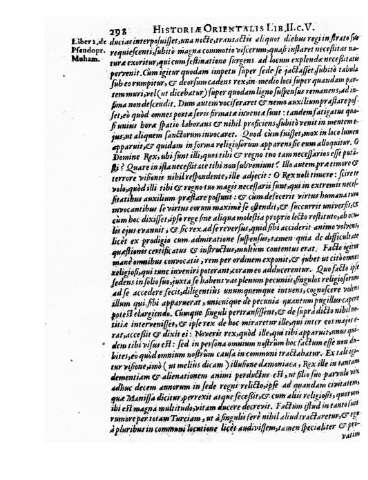 298 HISTORIÆ ORIENTALIS LIB.II.c.V.
Liber 2. de
Pseudopr.
Moham.
duciasinterposuisset, una nocte, transactis aliquot diebus regi in strato suo
requiescenti, subitò magna commotio viscerum, quasi instaret necessitas na-
tura exoritur, qui cum festinatione surgens ad locum explenda necessitatis
pervenit. Cum igitur quodam impetu super sede se jactasset, subitò tabula
sub eo rumpitur, & deorsum cadens rex, in medio loci super quondam par-
tem muri, vel (ut dicebatur) super quodam ligno suspensus remanens, ad in-
fima non descendit. Dum autem vociferaret & nemo auxilium præstare pos-
set, eò quòd omnes posta seris firmata inventa sunt: tandem fatigatus qua-
si unius hora spatio laborans & nihil proficiens, subitò venit in mentem e-
jus, ut aliquem sanctorum invocaret. Quod cùm fuisset, mox in loco lumen
apparuit, & quidam in forma religiosorum apparens sic eum alloquitur. O
Domine Rex, ubi sunt illi, quos tibi & regno tuo tam necessarios esse puta-
sti? Quare in ista necessitate tibi non subveniunt? Illo autem præ timore &
terrore visionis nihil respondente, ille adjecit: O Rex noli timere: scire te
volo, quòd illi tibi & regno tuo magis necessarii sunt, qui in extremis neces-
sitatibus auxilium præstare possunt: & cùm defecerit virtus humana in
invocantibus se virtus eorum maximè se ostendit, & succurrit universis, &
cùm hoc dixisset, ipse rege sine aliqua molestia proprio lecto restituto, ab ocu-
lis ejus evanuit, & sic rex ad se reversus, quod sibi acciderit animo volvens,
licèt ex prodigio cum admiratione suspensus, tamen quia de difficultate
quæstionis certificatus & instructus, multùm contentus erat. Facto igitur
mane omnibus convocatis, rem per ordinem exponit, & jubet ut citò omnes
religiosi, qui tunc inveniri poterant, coram eo adducerentur. Quo facto ipse
sedens in folio suo, juxta se habens vas plenum pecuniis, singulos religiosorum
ad se accedere fecit, diligentiùs unumquemque intuens, cognoscere volens
illum qui sibi apparuerat, unicuique de pecunia quantum pugillo capere
potest elargiendo. Cumque singuli pertransissent, & de suprà dicto nihil no-
titia intervenisset, & ipse rex de hoc miraretur ille, qui inter eos major e-
rat, accessit & dixit ei: Noveris rex, quòd ille, qui tibi apparuit, unus qui-
dem tibi visus est: sed in persona omnium nostrûm hoc factum esse non du-
bites, eò quòd omnium nostrûm causa in communi tractabatur. Ex tali igi-
tur visione, imò (ut meliùs dicam) illusione dæmoniaca, Rex ille in tantam
dementiam & alienationem animi perductus est, ut filio suo parvulo vix
adhuc decem annorum in sede regni relicto, ipse ad quandam civitatem,
quæ Manissa dicitur, perrexit atque secessit, & cum aliis religiosis, quorum
ibi est magna multitudo, vitam ducere decrevit. Factum istud in tanto fuit
rumore per totam Turciam, ut à singulis ferè nihil aliud tractaretur, & ege
à pluribus in communi locutione licèt audivissem, tamen specialiter & pri-
vatim